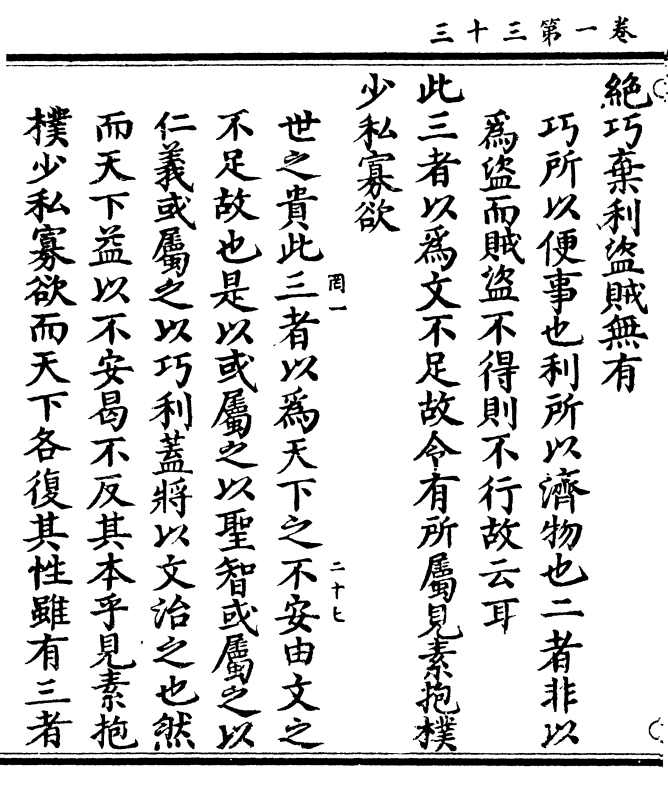 卷一第三十三
絕巧棄利盜賊無有
巧所以便事也利所以濟物也二者非以
爲盜而賊盜不得則不行故云耳
此三者以爲文不足故令有所屬見素抱樸
少私寡欲
罔一
二十七
世之貴此三者以爲天下之不安由文之
不足故也是以或屬之以聖智或屬之以
仁義或屬之以巧利蓋將以文治之也然
而天下益以不安曷不反其本乎見素抱
樸少私寡欲而天下各復其性雖有三者